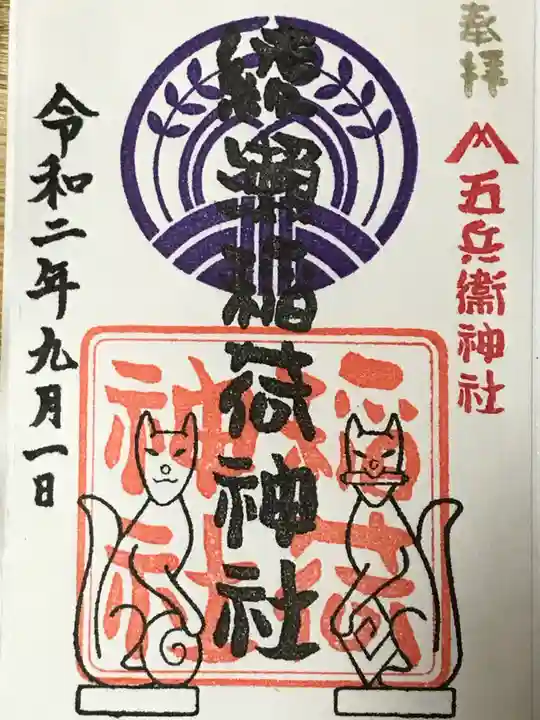 奉拝
五兵衞神社
稲荷神社
稲荷
神社
令和二年九月一日